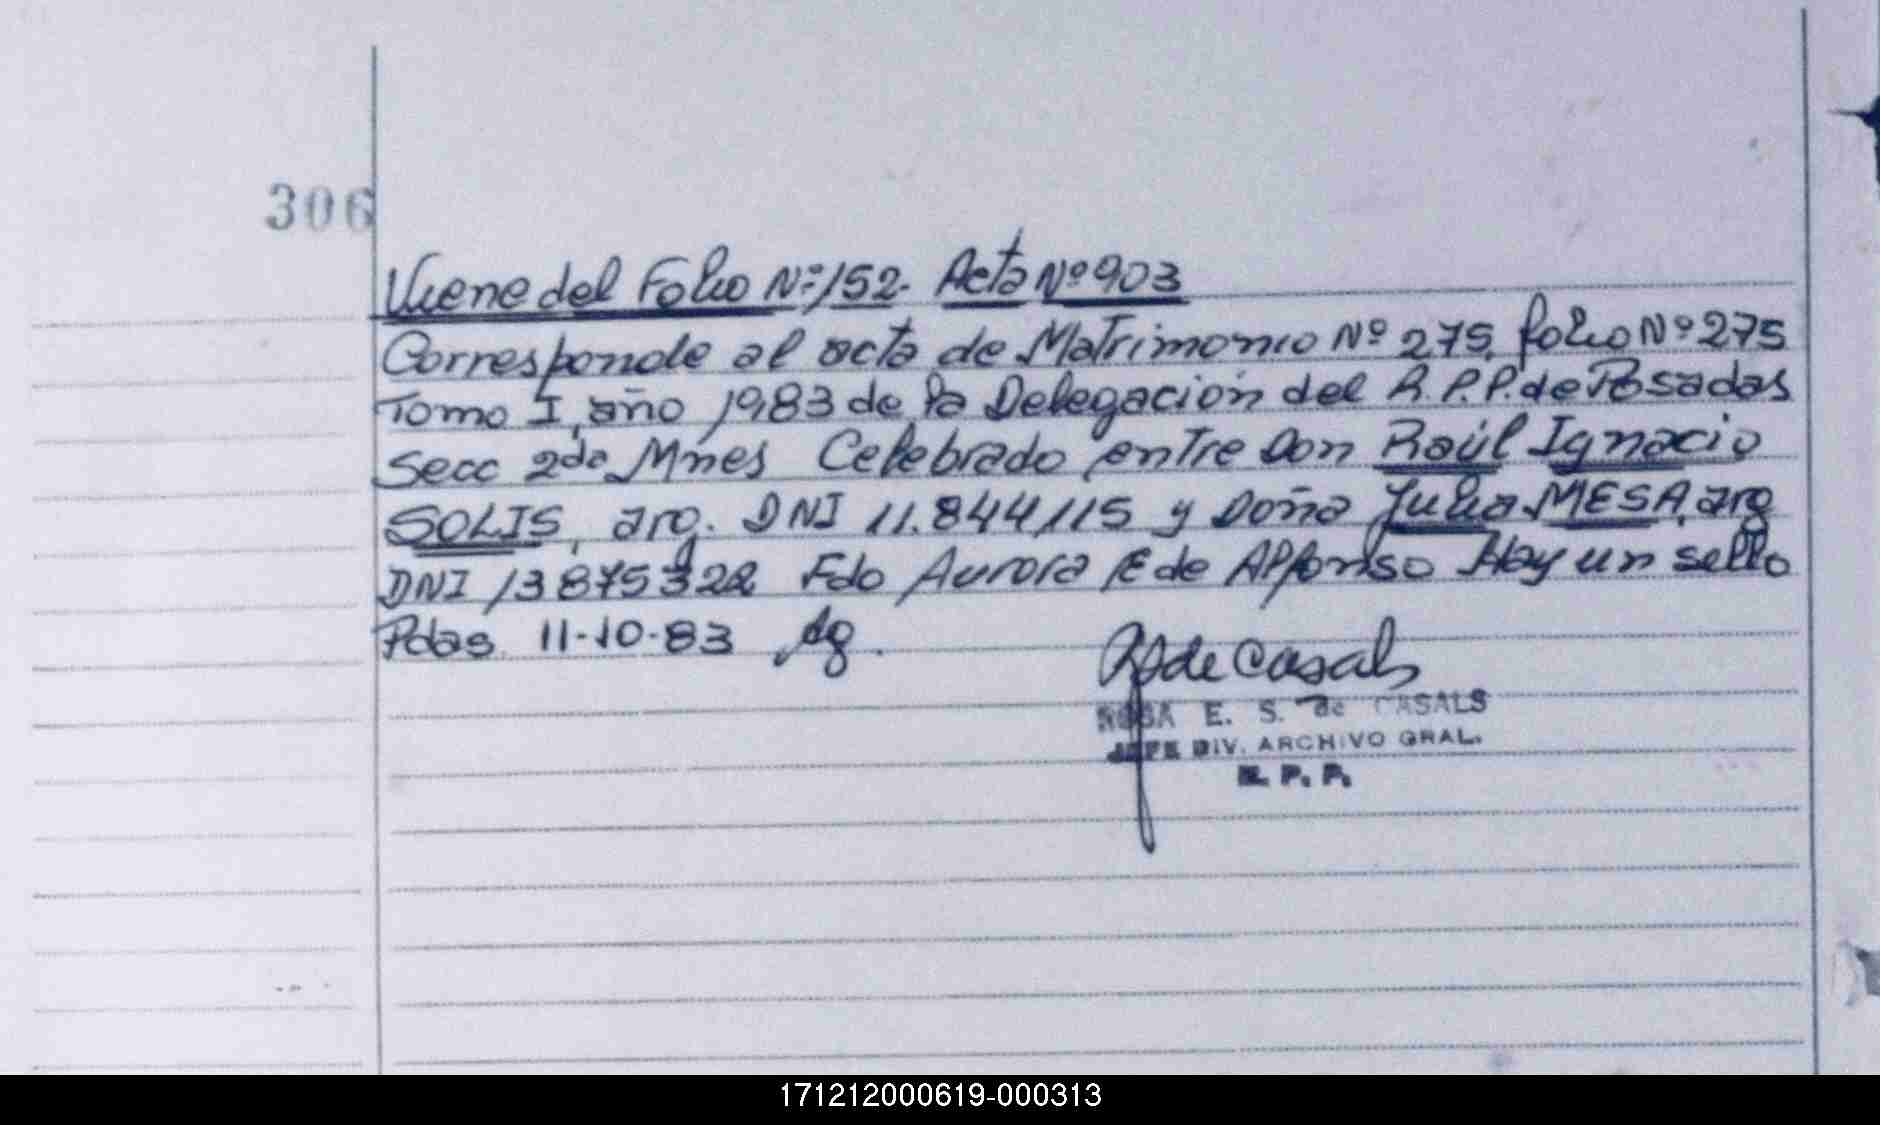 306
Viene del Folio Nº 152. Acta Nº 903
Corresponde al acta de Matrimonio Nº 275, folio Nº 275
Tomo I, año 1983 de la Delegación del R.P.P. de Posadas
Secc 2da Mnes Celebrado entre Don Raúl Ignacio
SOLIS, arg. DNI 11.844115 y Doña Julia MESA, arg
DNI 13875322 Fdo Aurora E de Alfonso Hay un sello
Pdas. 11-10-83
R S de Casals
ROSA E. S. de CASALS
JEFE DIV. ARCHIVO GRAL.
R. P. P.
171212000619-000313